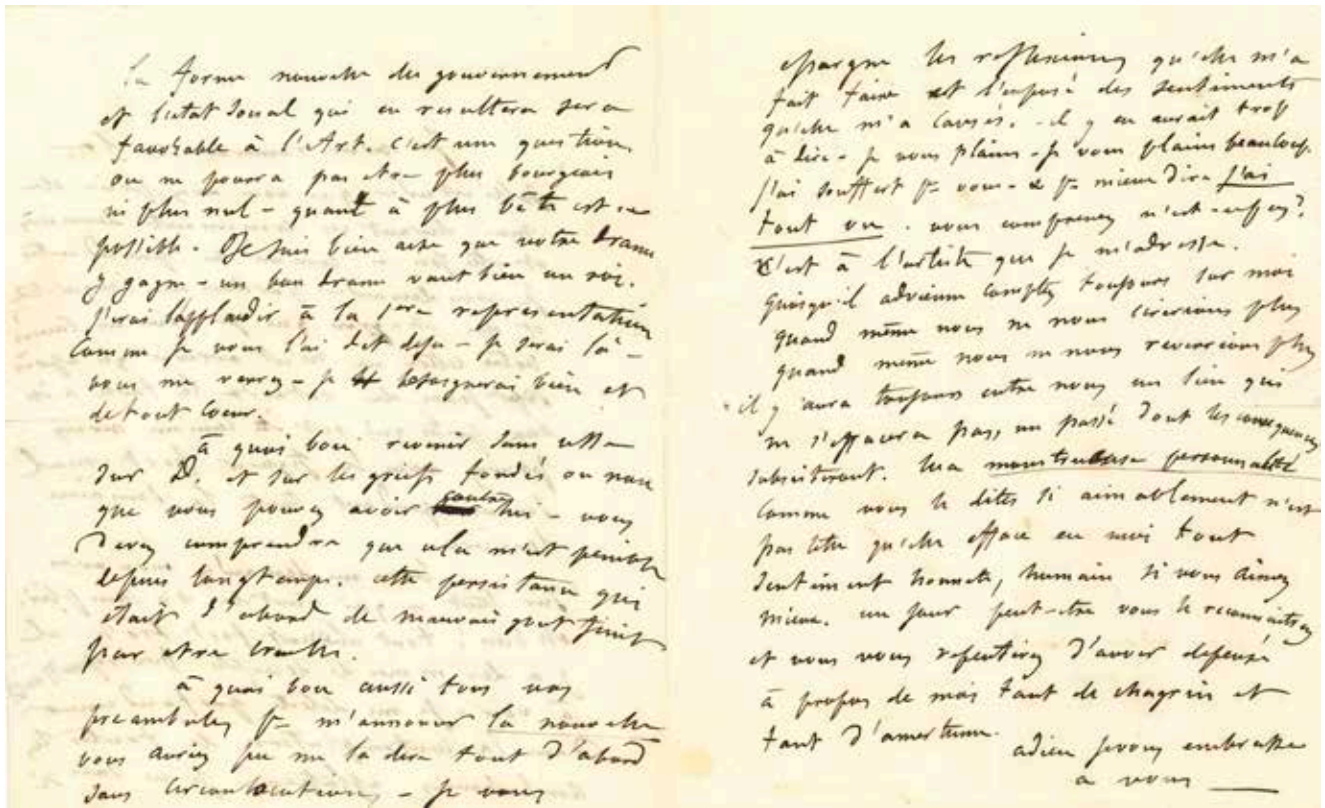 la forme nouvelle du gouvernement
et l'etat social qui en resultera sera
favorable à l'Art. c'est une question
on ne pourra pas etre plus bourgeois
ni plus nul - quant à plus bête est-ce
possible. Je suis bien aise que votre drame
y gagne - un bon drame vaut bien un roi.
J'irai l'applaudir à la 1ere representation
comme je vous l'ai dit deja - je serai là -
vous me verrez - je besognerai bien et
de tout coeur.
à quoi bon revenir sans cesse
sur D. et sur les griefs fondés ou non
que vous pouvez avoir contre lui - vous
devez comprendre que cela m'est penible
depuis longtemps. cette persistance qui
etait d'abord de mauvais gout finit
par etre cruelle.
à quoi bon aussi tous vos
preambules pr m'annoncer la nouvelle
vous auriez pu me la dire tout d'abord
sans circonlocutions - je vous
epargne les reflexions qu'elle m'a
fait faire et l'exposé des sentiments
qu'elle m'a causés. - il y en aurait trop
à dire - je vous plains - je vous plains beaucoup.
j'ai souffert pr vous - & pr mieux dire j'ai
tout vu. vous comprenez n'est-ce pas?
c'est à l'artiste que je m'adresse.
quoiqu'il advienne comptez toujours sur moi
quand même nous ne nous ecririons plus
quand même nous ne nous reverrions plus
il y aura toujours entre nous un lien qui
ne s'effacera pas, un passé dont les consequences
subsisteront. ma monstrueuse personnalité
comme vous le dites si aimablement n'est
pas telle qu'elle efface en moi tout
sentiment honnete, humain si vous aimez
mieux. un jour peut-etre vous le reconnaitrez
et vous vous repentirez d'avoir depensé
à propos de moi tant de chagrin et
tant d'amertume.
adieu je vous embrasse
a vous